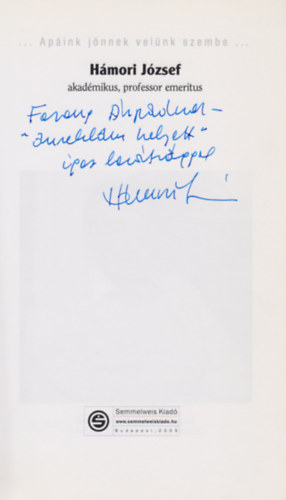 ... Apáink jönnek velünk szembe ...
Hámori József
akadémikus, professor emeritus
Árpádnak –
helyett"
igaz barátsággal
Hámori
Semmelweis Kiadó
www.semmelweiskiado.hu
Budapest, 2005